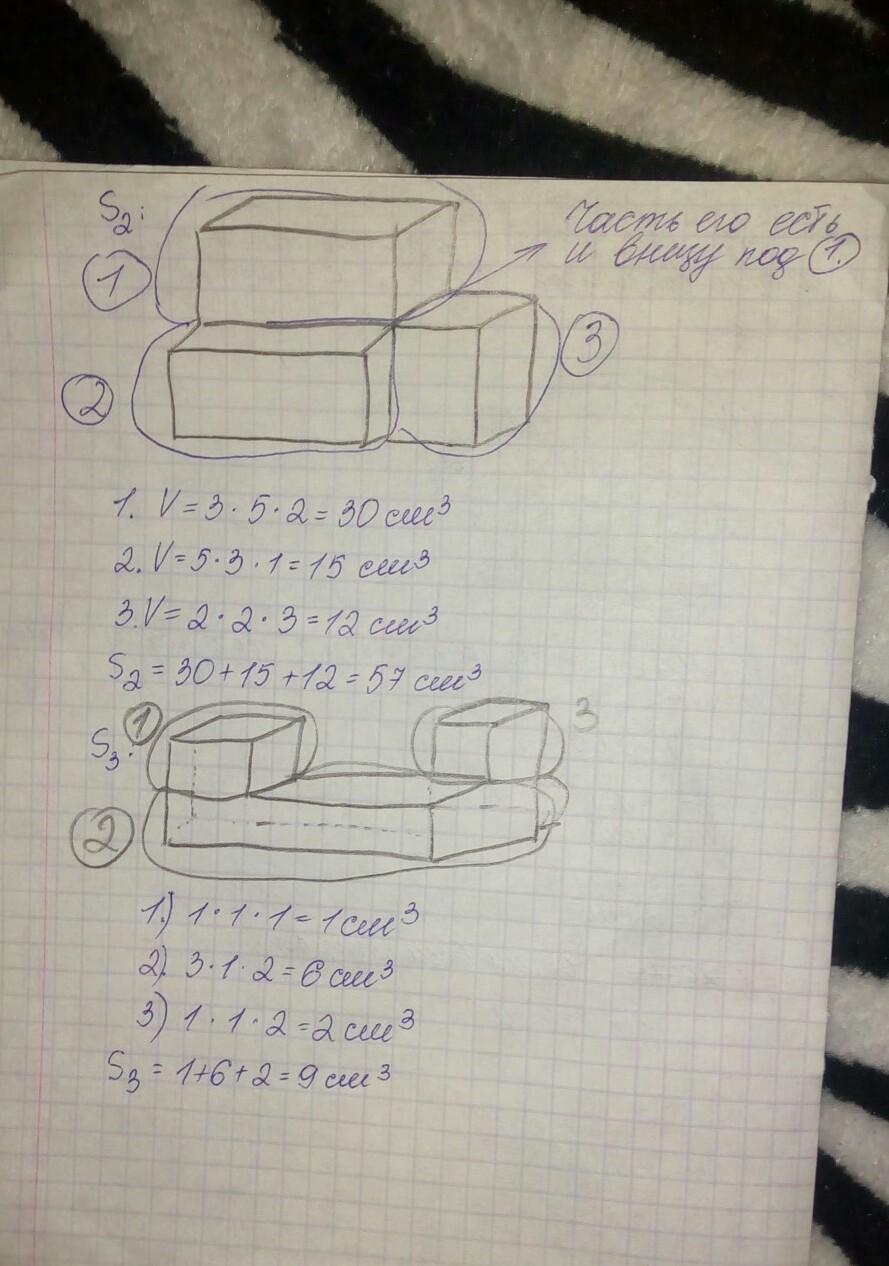 S₂:
Часть его есть
и внизу под ①.
①
③
②
1. V = 3 · 5 · 2 = 30 см³
2. V = 5 · 3 · 1 = 15 см³
3. V = 2 · 2 · 3 = 12 см³
S₂ = 30 + 15 + 12 = 57 см³
① 3
S₃:
②
1.) 1 · 1 · 1 = 1 см³
2) 3 · 1 · 2 = 6 см³
3) 1 · 1 · 2 = 2 см³
S₃ = 1 + 6 + 2 = 9 см³